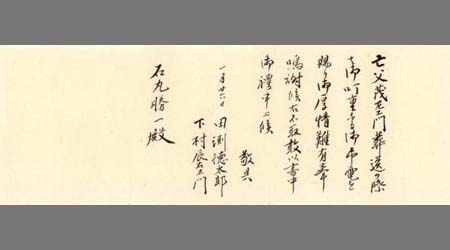 亡父茂左エ門葬送の際
は御叮重なる御弔電を
賜り御厚情難有奉
鳴謝候右不取敢以書中
御禮申上候
敬具
一月廿六日
田渕徳太郎
下村辰五郎
石丸勝一殿